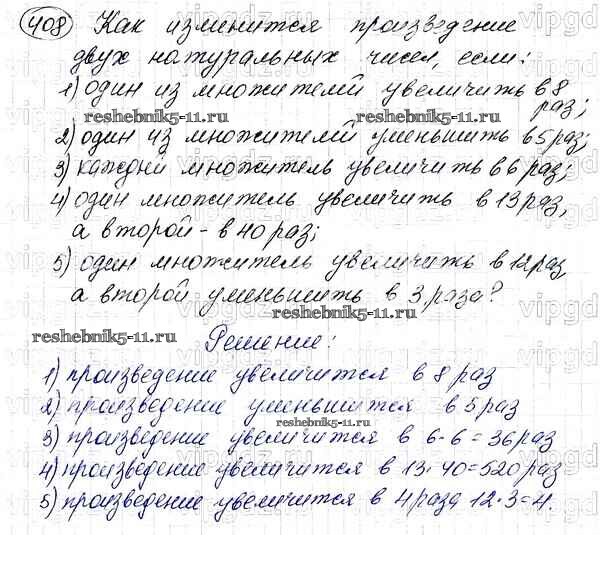 408 Как изменится произведение
двух натуральных чисел, если:
1) один из множителей увеличить в 8
раз;
reshebnik5-11.ru reshebnik5-11.ru
2) один из множителей уменьшить в 5 раз;
3) каждый множитель увеличить в 6 раз;
4) один множитель увеличить в 13 раз,
а второй - в 40 раз;
5) один множитель увеличить в 12 раз
а второй уменьшить в 3 раза?
reshebnik5-11.ru reshebnik5-11.ru
Решение:
1) произведение увеличится в 8 раз
2) произведение уменьшится в 5 раз
reshebnik5-11.ru
3) произведение увеличится в 6·6=36 раз
4) произведение увеличится в 13·40=520 раз
5) произведение увеличится в 4 раза 12:3=4.